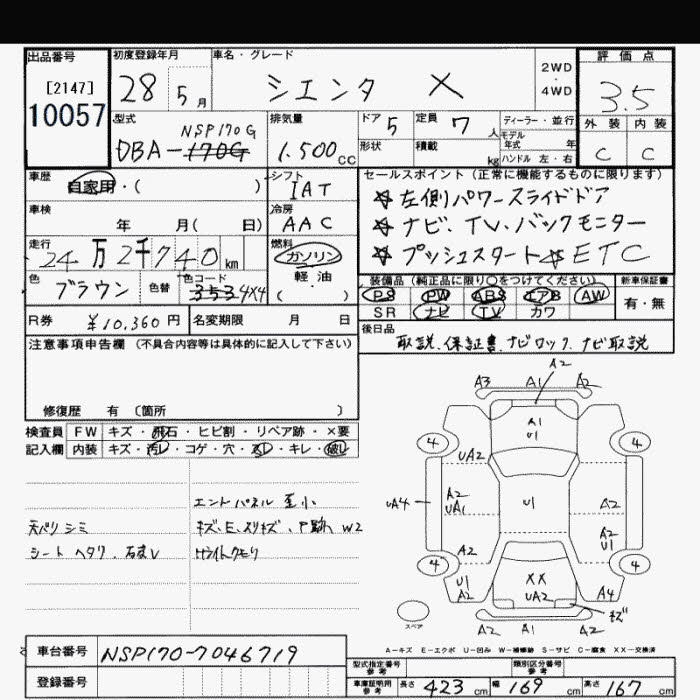 出品番号 初度登録年月 車名・グレード 2WD・4WD 評価点
[2147] 28 5月 シエンタ X 3.5
10057
型式 排気量 ドア 5 定員 7人 ディーラー・並行 外装 内装
NSP170G
DBA-170G 1.500cc 形状 積載 kg モデル年式 年 C C
ハンドル 左・右
車歴 自家用・( ) シフト IAT セールスポイント(正常に機能するものに限ります)
☆左側パワースライドドア
車検 年 月( 日) 冷房 AAC ☆ナビ、TV、バックモニター
走行 24万2千740km 燃料 ガソリン 軽・油 ( ) ☆プッシュスタート☆ETC
色 ブラウン 色替 色コード 353 4X4 装備品(純正品に限り○をつけてください) 新車保証書
PS PW ABS エアB AW 有・無
SR ナビ TV カワ
R券 ¥10,360円 名変期限 月 日 後日品
取説、保証書、ナビロック、ナビ取説
注意事項申告欄(不具合内容等は具体的に記入して下さい)
修復歴 有 〔箇所 〕
検査員 FW キズ・飛石・ヒビ割・リペア跡・×要
記入欄 内装 キズ・汚レ・コゲ・穴・スレ・キレ・破レ
天バリシミ
シートヘタリ、
エンドパネル 歪小
キズ、E、スリキズ、 W2
ライトクモリ
A2
A3 A1 A2
A1
U1
4 4
UA2
UA4 A2 UA1 U1 A2
A2 U1
A2
4 4
U1 A2 XX UA2 A4
キズ
スペア
A2 A1 A2
A-キズ E-エクボ U-凹み W-補修跡 S-サビ C-腐食 XX-交換済
車台番号 NSP170-7046719
登録番号
型式指定番号 参考 類別区分番号 参考
車庫証明用 参考 長さ 423cm 幅 169cm 高さ 167cm